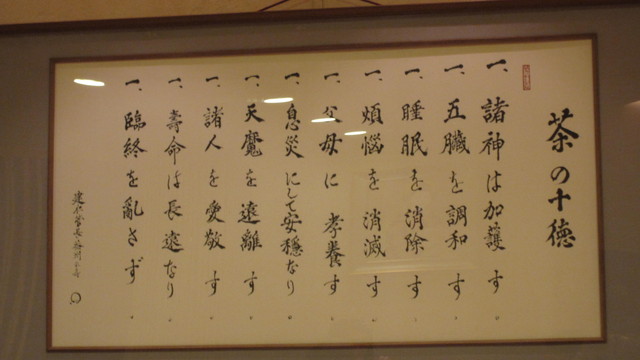 茶の十徳
一、諸神は加護す。
一、五臓を調和す。
一、睡眠を消除す。
一、煩悩を消滅す。
一、父母に孝養す。
一、息災にして安穏なり。
一、天魔を遠離す。
一、諸人を愛敬す。
一、壽命は長遠なり。
一、臨終を乱さず。